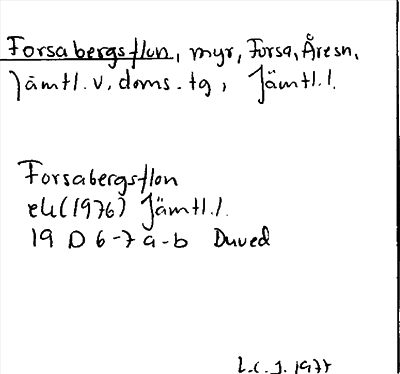 Forsabergsflon, myr, Forsa, Åresn,
Jämtl. v. doms. tg, Jämtl. l.
Forsabergsflon
ek (1976) Jämtl. l.
19 D 6-7 a-b Duved
L.C.J. 1977